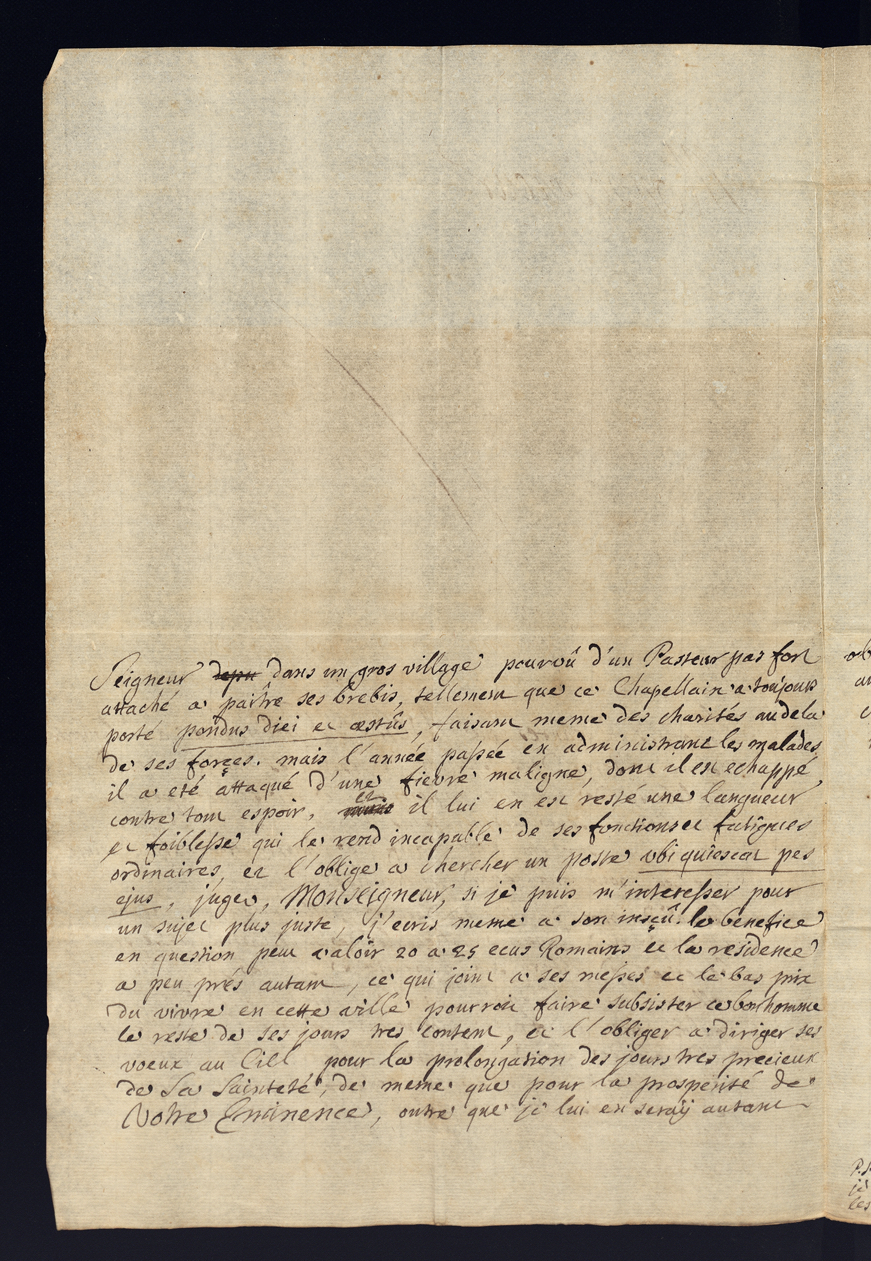 Seigneur depu dans un gros village pourvû d'un Pasteur pas fort
attaché a paitre ses brebis, tellement que ce Chapellain a toujours
porté pondus diei et æstûs, faisant meme des charités audela
de ses forçes. mais l'année passée en administrant les malades
il a eté attaqué d'une fievre maligne, dont il est echappé
contre tout espoir, et il lui en est resté une langueur
et foiblesse qui le rend incapable de ses fonctions et fatigues
ordinaires, et l'oblige a chercher un poste ubi quiescat pes
ejus. jugez, Monseigneur, si je puis m'interesser pour
un sujet plus juste, j'ecris meme a son insçû. le benefice
en question peut valoir 20 a 25 ecus Romains et la residence
a peu prés autant, ce qui joint a ses messes et le bas prix
du vivre en cette ville pourroit faire subsister ce bon homme
le reste de ses jours tres content, et l'obliger a diriger ses
voeux au Ciel pour la prolongation des jours tres precieux
de Sa Sainteté, de meme que pour la prosperité de
Votre Eminence, outre que je lui en seraÿ autant
ob
P.S.
je
les